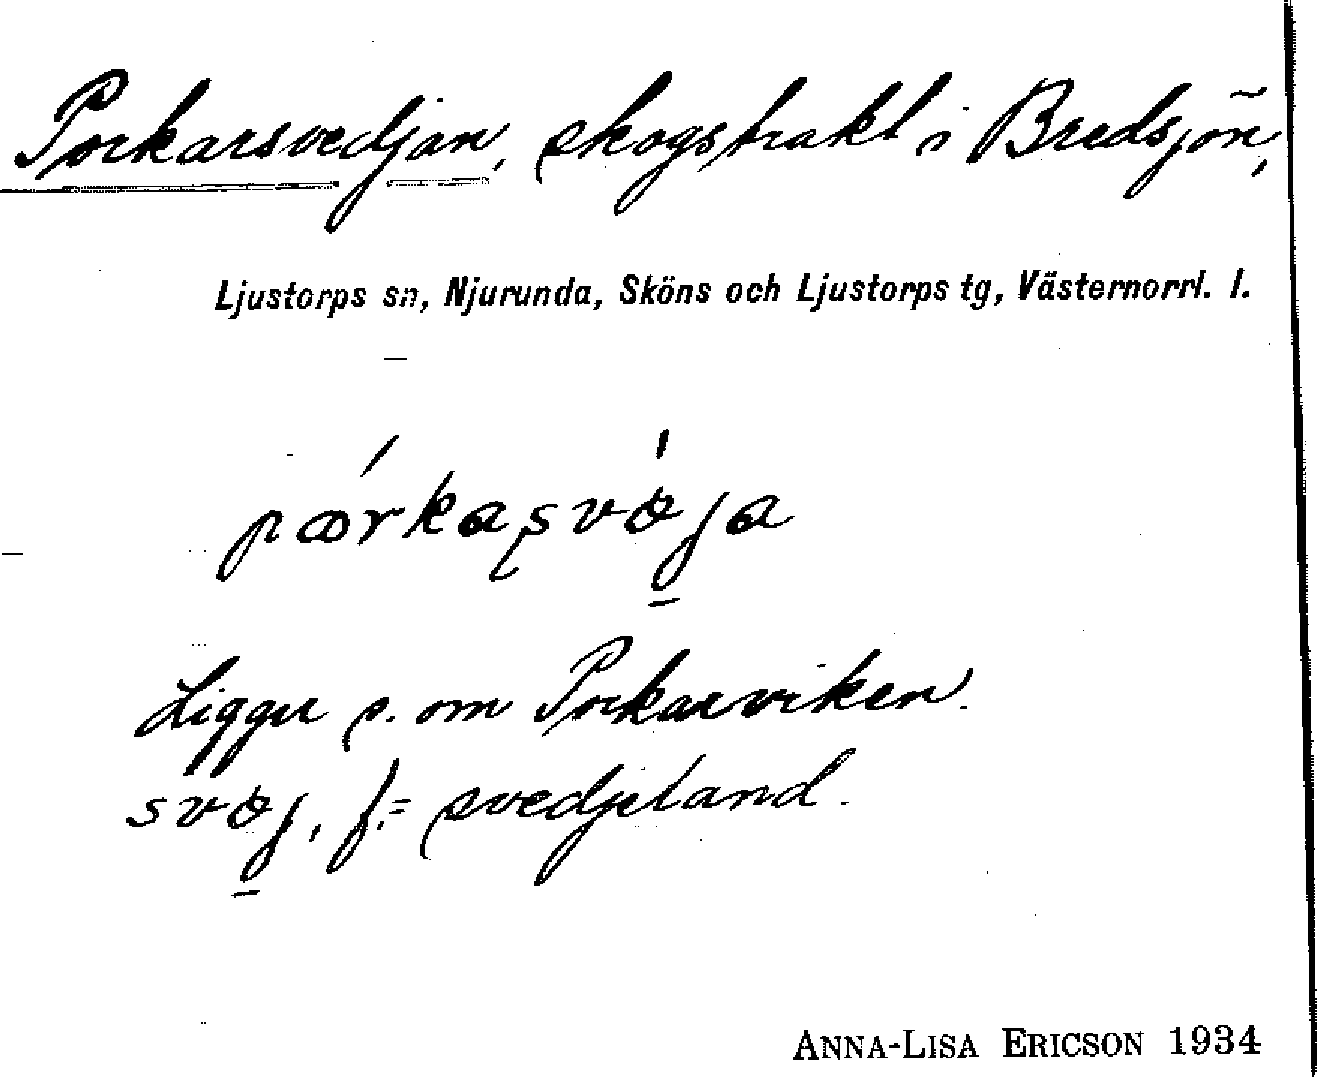 Porkarsvedjan, skogstrakt i Bredsjön,
Ljustorps sn, Njurunda, Sköns och Ljustorps tg, Västernorrl. l.
Ligger s. om Porkarviken.
f.= svedjeland.
ANNA-LISA ERICSON 1934